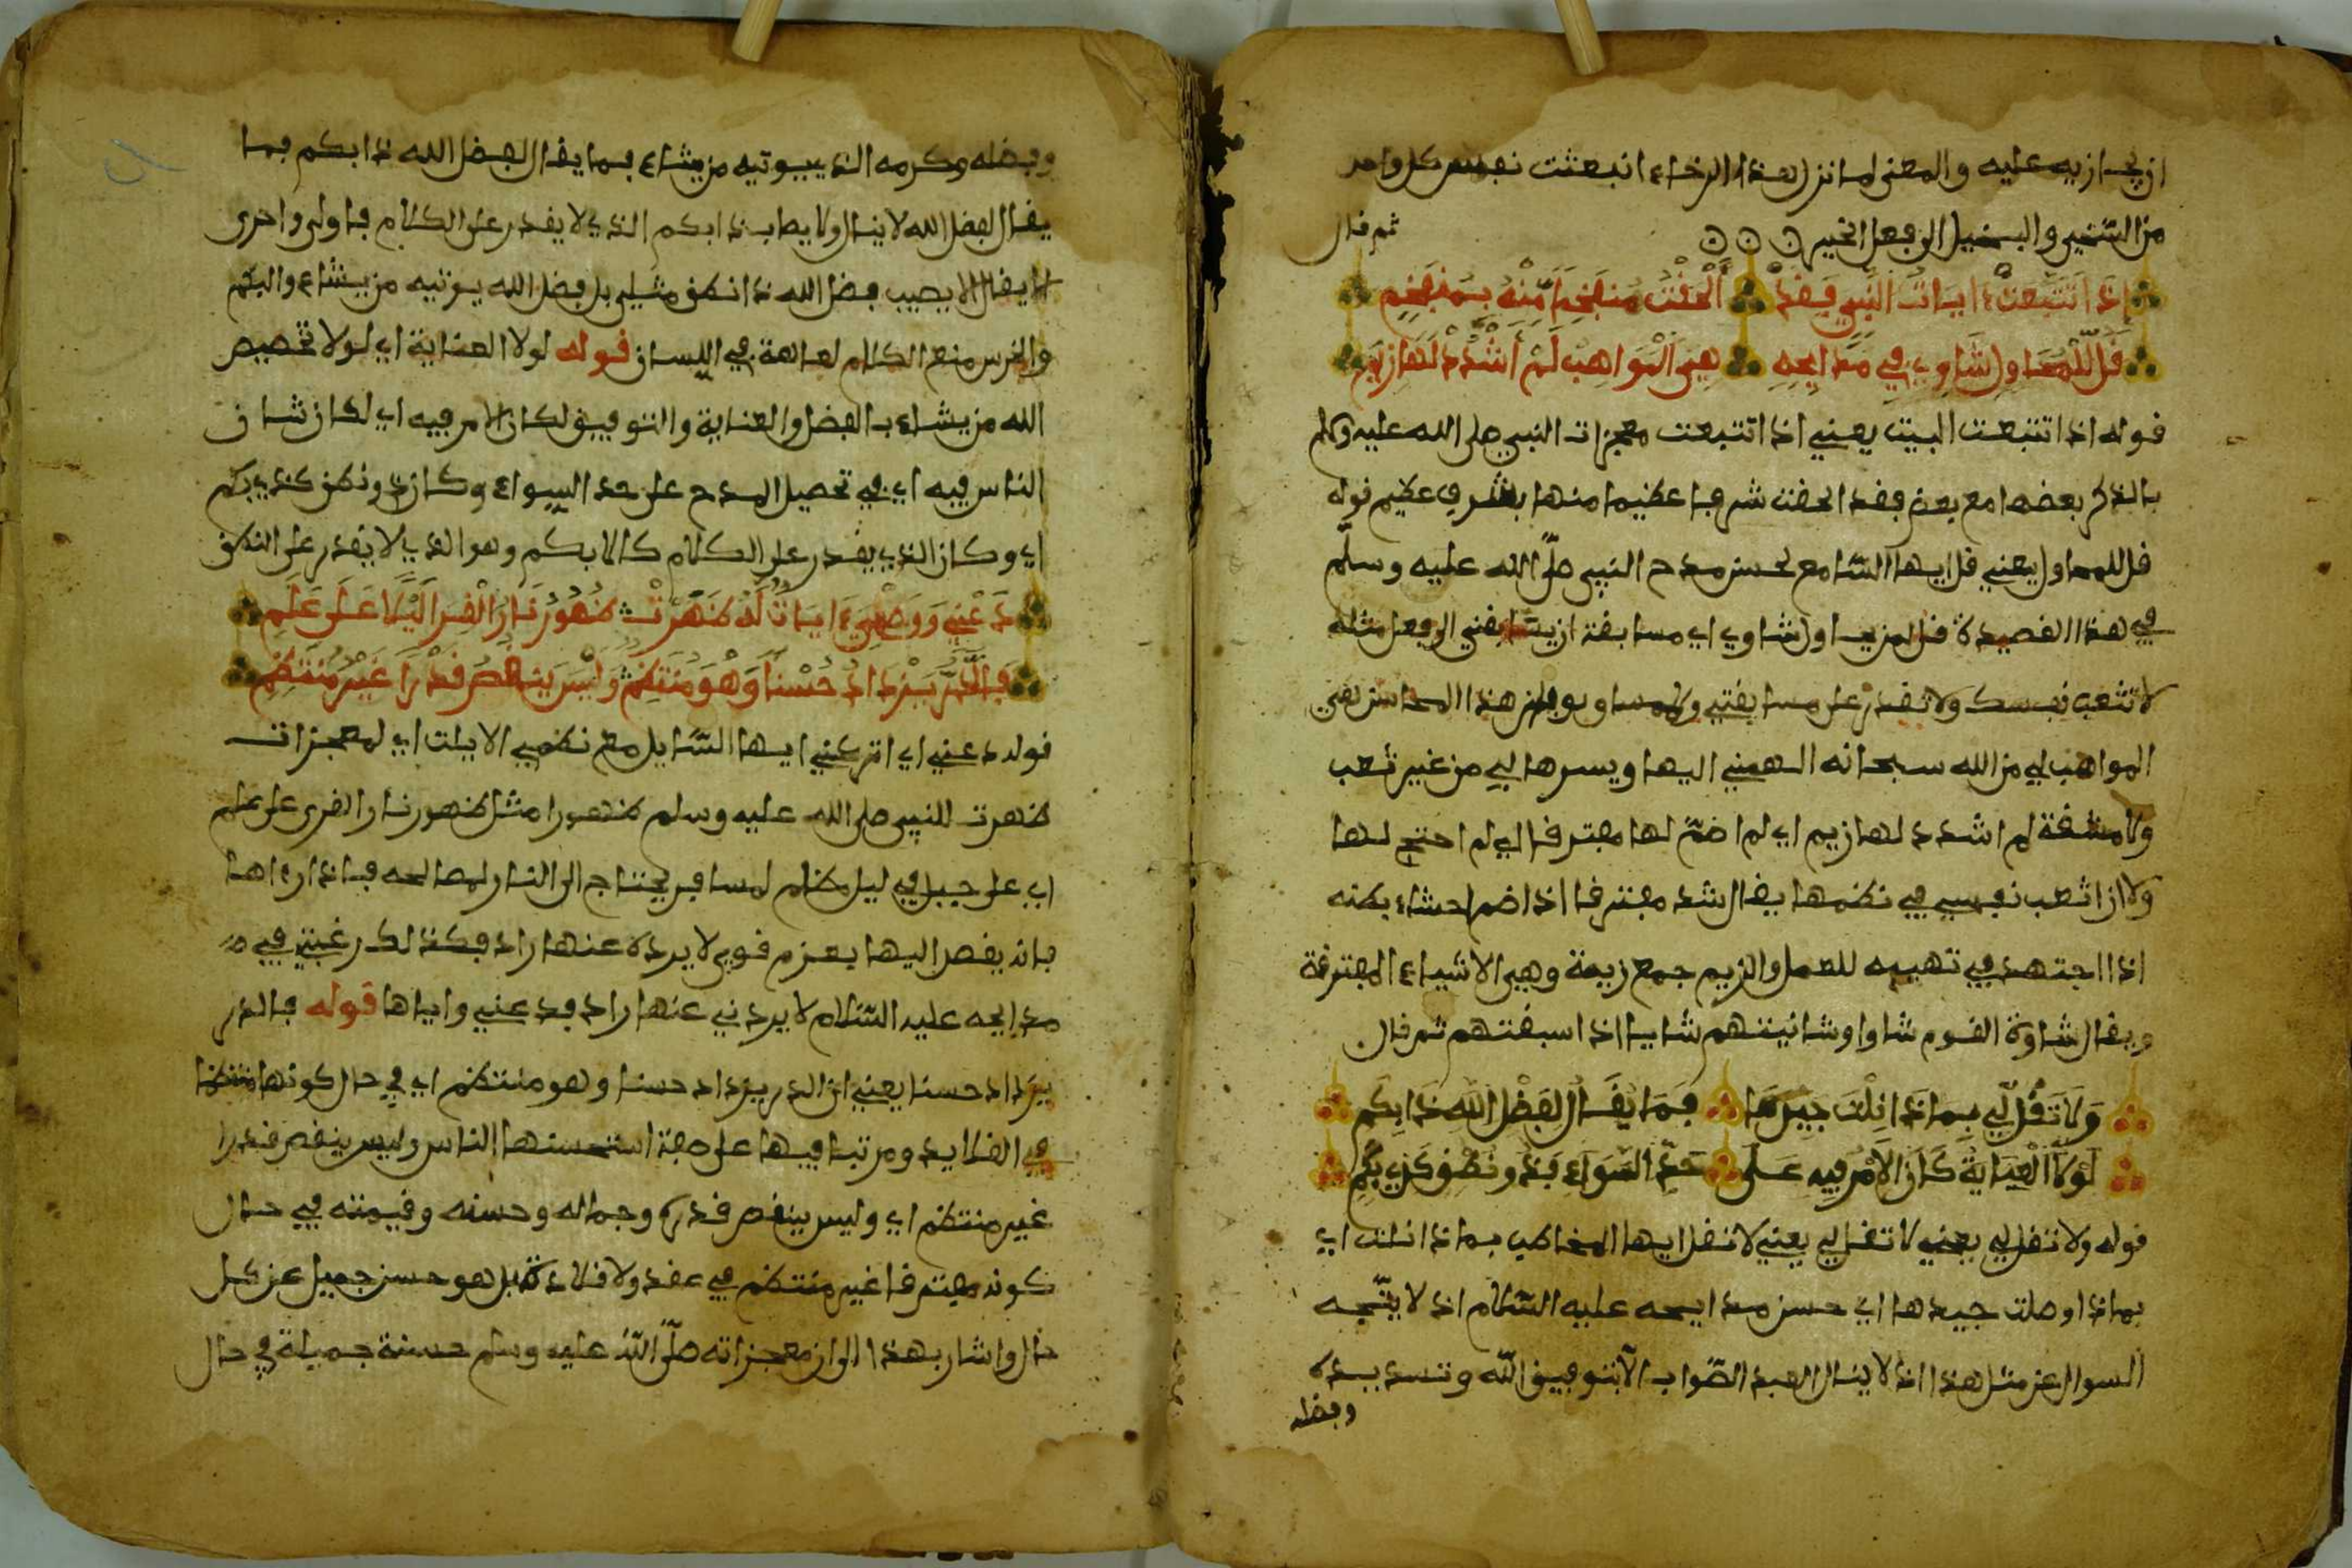 ان يجازيه عليه والمعنى لما نزل هذا الرخاء انبعثت نفس كل واحد
من الشحيح والبخيل الى فعل الخير ثم قال
إذا تتبعت ءايات النبي فقد ألحقت منفخما منه بمنفخم
قل للمحاول شاو في مدايحه هي المواهب لم أشدد لها زيم
قوله اذا تتبعت البيت يعني اذا تتبعت معجزات النبي صلى الله عليه وسلم
بالذكر بعضها مع بعض فقد الحقت شرفا عظيما منها بشرف عظيم قوله
قل للمحاول يعني قل ايها السامع لحسن مدح النبي صلى الله عليه وسلم
في هذا القصيدة قل لمن يحاول شاوي اي مسابقة ان يسابقني الى فعل مثله
لا تتعب نفسك ولا تقدر على مسابقتي هذا المحاسن يعني
المواهب لي من الله سبحانه الهمني اليها ويسرها لي من غير تعب
ولا مشقة لم اشدد لها زيم اي لم اضم لها مفترقا اي لم احتج لها
ولا ان اتعب نفسي في نظمها يقال شد مفترقا اذا ضم احشاء بطنه
اذا اجتهد في تهييه للعمل والزيم جمع زيمة وهي الاشياء المفترقة
ويقال شاوة القوم شاوا وشانيتهم شايا اذا سبقتهم ثم قال
ولا تقل لي بماذا نلت جيدها فما يقال لفضل الله ذا بكم
لولا العناية كان الأمر فيه على حد السواء فذو نطق كذي بكم
قوله ولا تقل لي يعني لا تقل لي يعني لا تقل ايها المخاطب بماذا نلت اي
بماذا وصلت جيدها اي حسن مدايحه عليه السلام اذ لا يتجه
السوال عن مثل هذا اذ لا ينال العبد الصواب الا بتوفيق الله وتسديده
وفضله
وبفضله وكرمه الذي يوتيه من يشاء فما يقال لفضل الله ذا بكم فما
يقال لفضل الله لا ينال ولا يطاب ذا بكم الذي لا يقدر على الكلام فاولى واحرى
لا يقال لا يصيب فضل الله ذا نطق مثلي بل فضل الله يوتيه من يشاء والبكم
والخرس منع الكلام لعاهة في اللسان قوله لولا العناية اي لولا تخصيص
الله من يشاء بالفضل والعناية والتوفيق لكان الامر فيه اي لكان شان
الناس فيه اي في تحصيل المدح على حد السواء وكان ذو نطق كذي بكم
اي وكان الذي يقدر على الكلام كالابكم وهو الذي لا يقدر على النطق
دعني ووصفي ءايات له ظهرت ظهور نار القرى ليلا على علم
فالدر يزداد حسنا وهو منتظم وليس ينقص قدرا غير منتظم
قوله دعني اي اتركني ايها السايل مع نظمي الايات اي لمعجزات
ظهرت للنبي صلى الله عليه وسلم ظهورا مثل ظهور نار القرى على علم
اي على جبل في ليل مظلم لمسافر يحتاج الى النار لمصالحه فاذا رءاها
فانه يقصد اليها بعزم قوي لا يرده عنها راد فكذلك رغبتي في
مدايحه عليه السلام لا يردني عنها راد فدعني واياها قوله فالدر
يزداد حسنا يعني ان الدر يزداد حسنا وهو منتظم اي في حال كونها منتظما
في القلايد ومرتبا فيها على صفة استحسنها الناس وليس ينقص قدرا
غير منتظم اي وليس ينقص قدره وجماله وحسنه وقيمته في حال
كونه مفترقا غير منتظم في عقد ولا قلادة بل هو حسن جميل عن كل
حال واشار بهذا الى ان معجزاته صلى الله عليه وسلم حسنة جميلة في حال